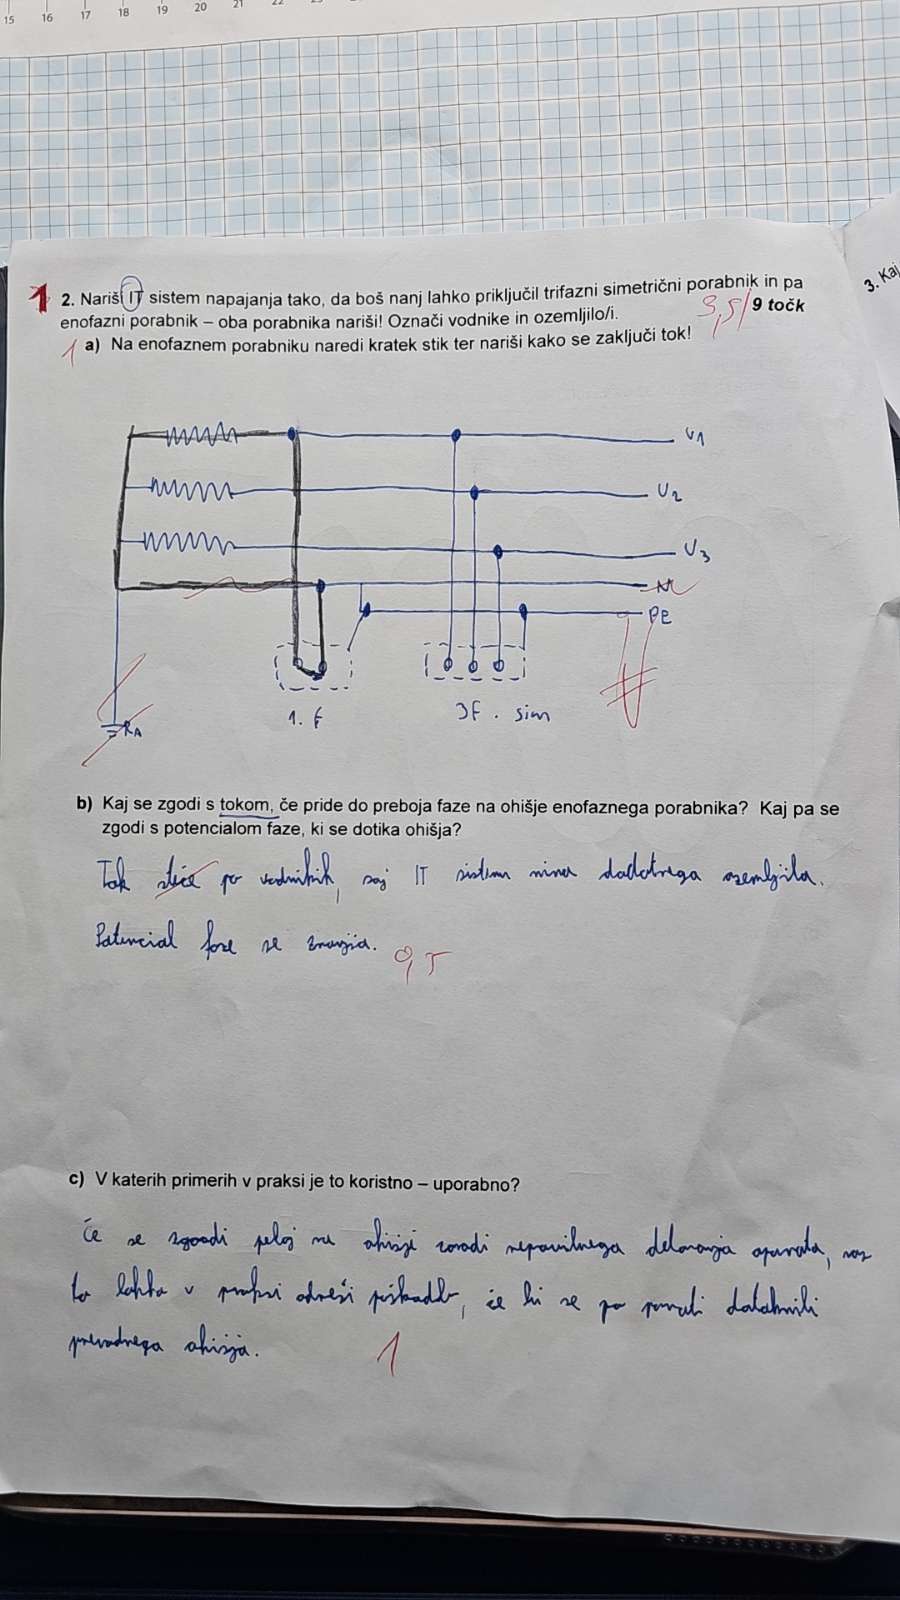 15 16 17 18 19 20 21 22
1 2. Nariši IT sistem napajanja tako, da boš nanj lahko priključil trifazni simetrični porabnik in pa
3. Kaj
enofazni porabnik – oba porabnika nariši! Označi vodnike in ozemljilo/i.
3,5/ 9 točk
1 a) Na enofaznem porabniku naredi kratek stik ter nariši kako se zaključi tok!
V1
V2
V3
N
PE
1. F
3F. sim
RA
b) Kaj se zgodi s tokom, če pride do preboja faze na ohišje enofaznega porabnika? Kaj pa se
zgodi s potencialom faze, ki se dotika ohišja?
Tok steče po vodnikih, saj IT sistem nima dodatnega ozemljila.
Potencial faze se zmanjša.
0,5
c) V katerih primerih v praksi je to koristno – uporabno?
Če se zgodi preboj na ohišje zaradi nepravilnega delovanja aparata, nas
to lahko v praksi odreši poškodb, če bi se po pomoti dotaknili
prevodnega ohišja.
1